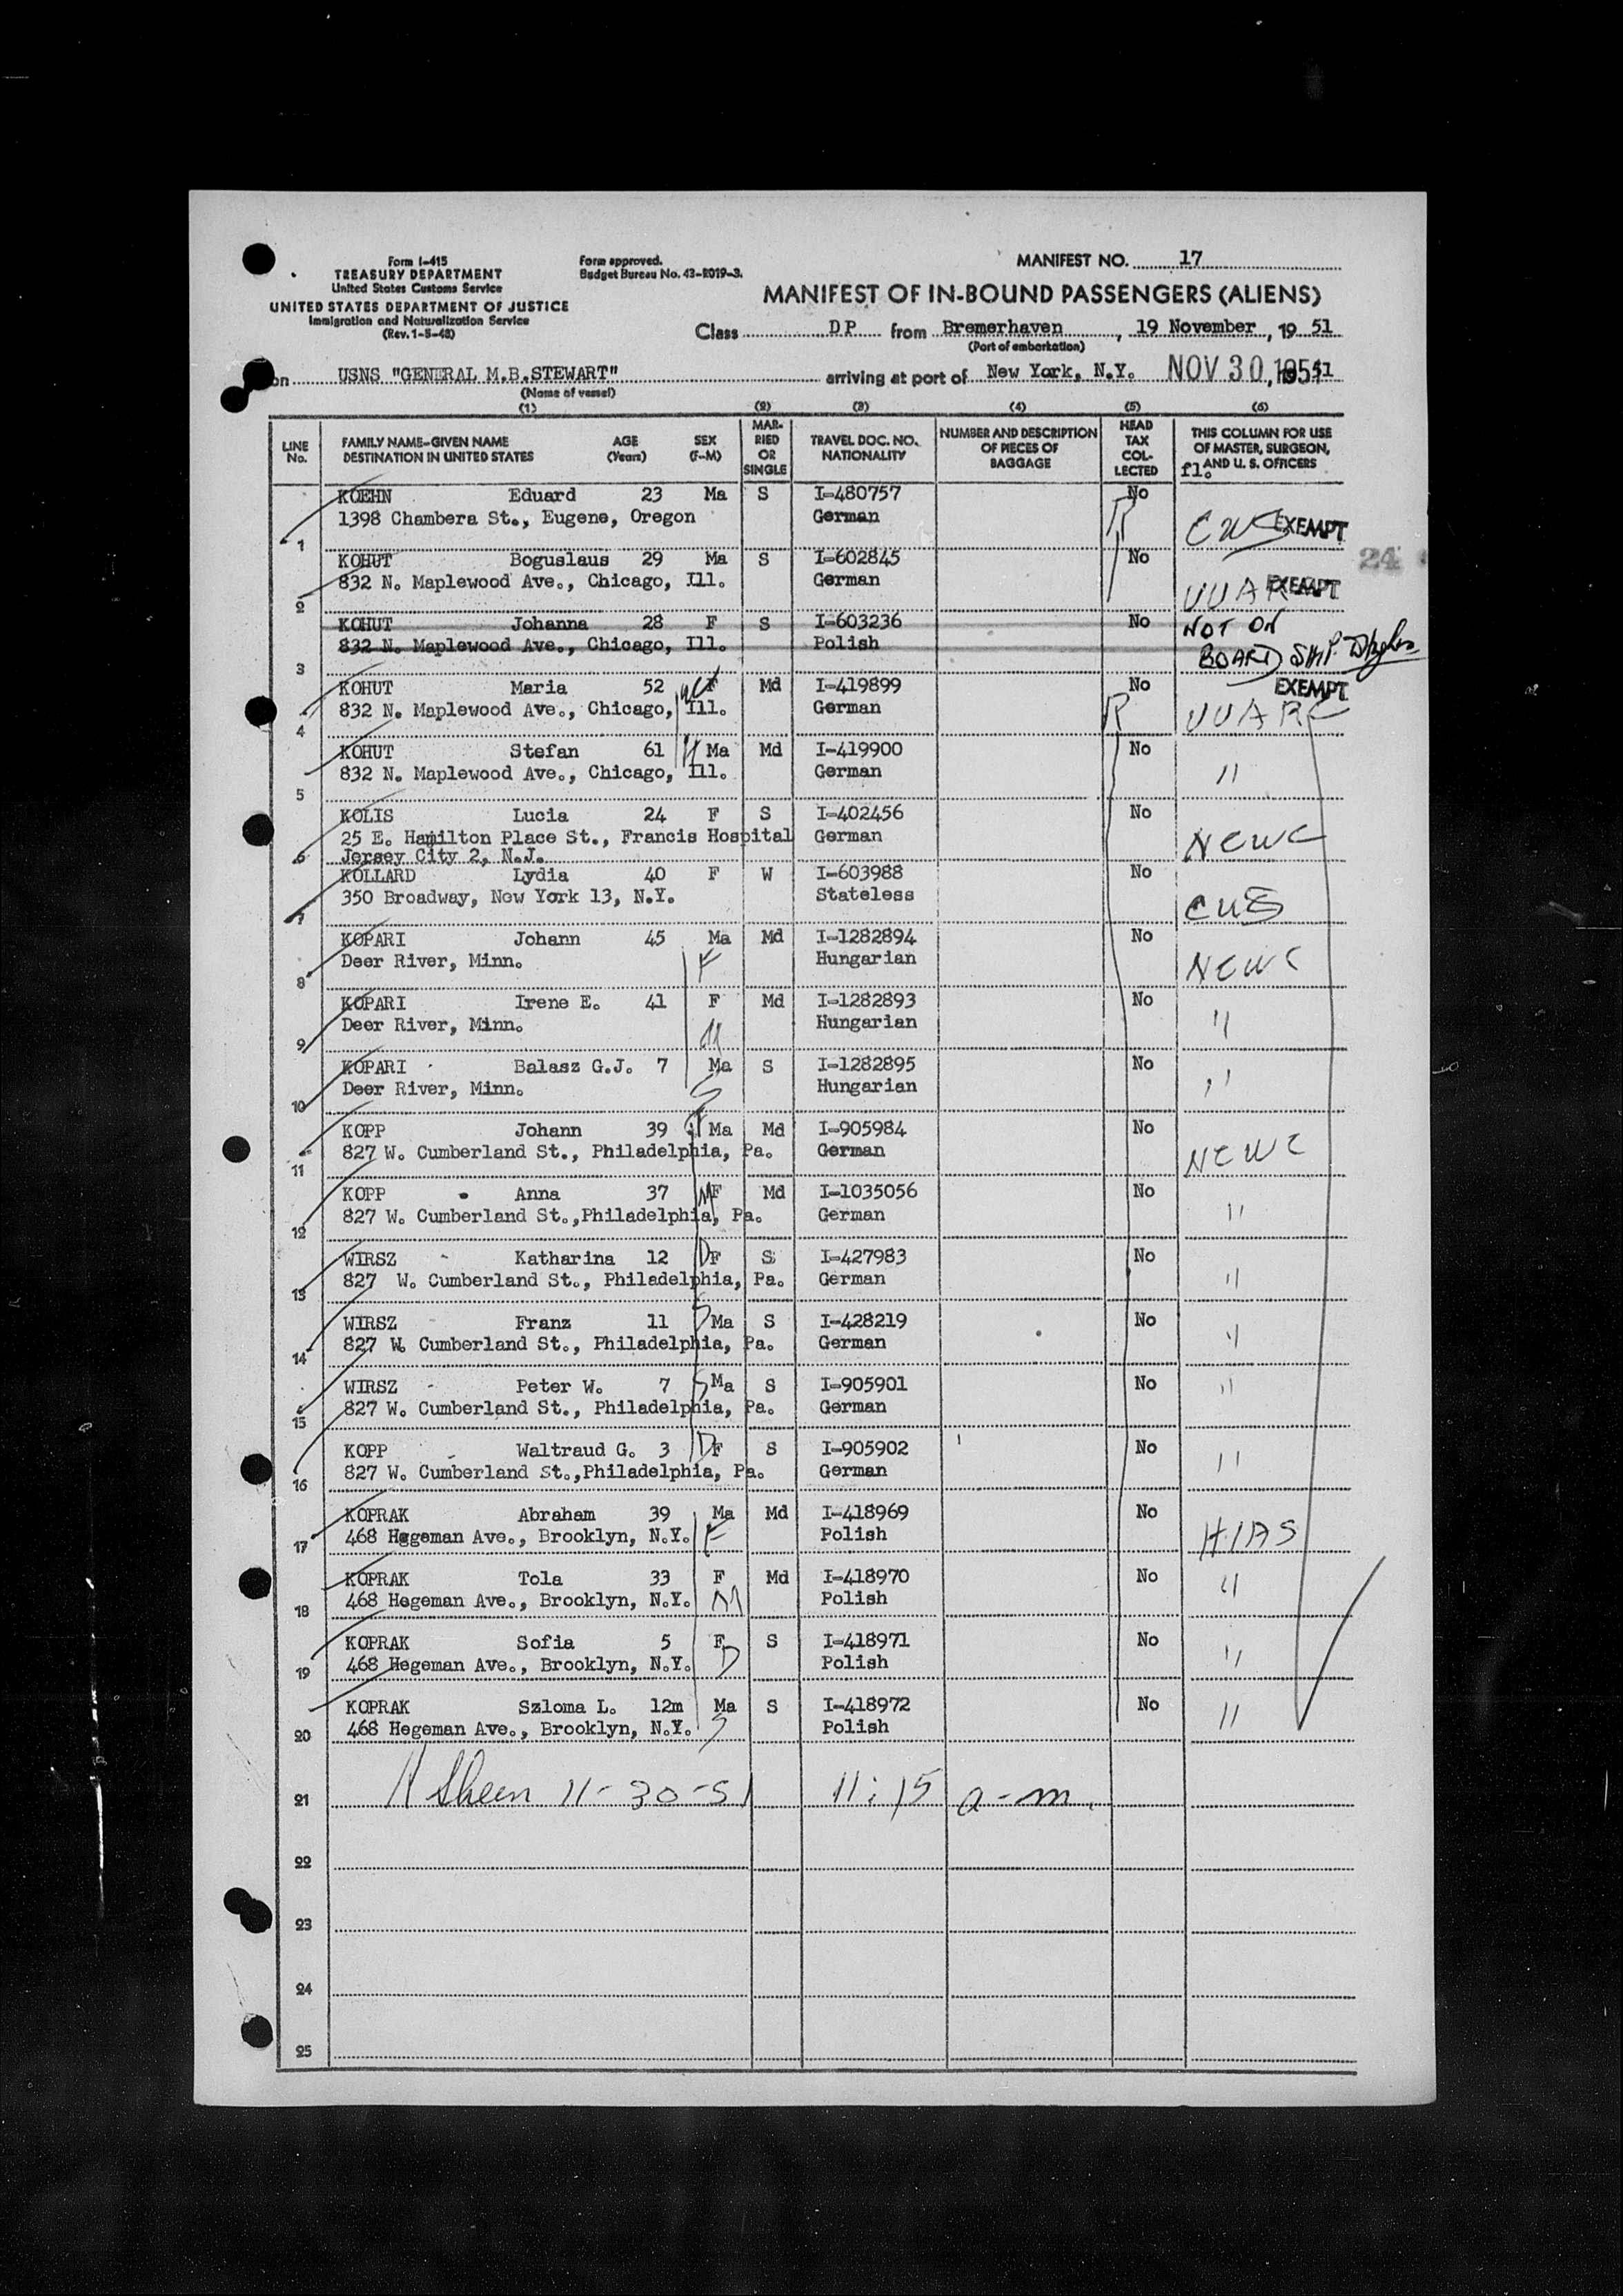 Form I-415
TREASURY DEPARTMENT
United States Customs Service
UNITED STATES DEPARTMENT OF JUSTICE
Immigration and Naturalization Service
(Rev. 1-5-48)
Form approved.
Budget Bureau No. 43-R019-3.
MANIFEST NO. 17
MANIFEST OF IN-BOUND PASSENGERS (ALIENS)
Class DP from Bremerhaven, 19 November, 19 51
(Port of embarkation)
on USNS "GENERAL M.B.STEWART" arriving at port of New York, N.Y. NOV 30, 1951
(Name of vessel)
(1) (2) (3) (4) (5) (6)
LINE No. FAMILY NAME-GIVEN NAME DESTINATION IN UNITED STATES AGE (Years) SEX (F-M) MARRIED OR SINGLE TRAVEL DOC. NO. NATIONALITY NUMBER AND DESCRIPTION OF PIECES OF BAGGAGE HEAD TAX COLLECTED THIS COLUMN FOR USE OF MASTER, SURGEON, AND U. S. OFFICERS
fl.
KOEHN Eduard 23 Ma S I-480757 No
1398 Chambera St., Eugene, Oregon German CWS EXEMPT
1
KOHUT Boguslaus 29 Ma S I-602845 No
24
832 N. Maplewood Ave., Chicago, Ill. German EXEMPT
2
KOHUT Johanna 28 F S I-603236 No NOT ON
832 N. Maplewood Ave., Chicago, Ill. Polish BOARD SHIP
3
KOHUT Maria 52 F Md I-419899 No EXEMPT
832 N. Maplewood Ave., Chicago, Ill. German UUARC
4
KOHUT Stefan 61 Ma Md I-419900 No
832 N. Maplewood Ave., Chicago, Ill. German "
5
KOLIS Lucia 24 F S I-402456 No
25 E. Hamilton Place St., Francis Hospital German NCWC
6 Jersey City 2, N.J.
KOLLARD Lydia 40 F W I-603988 No
350 Broadway, New York 13, N.Y. Stateless CWS
7
KOPARI Johann 45 Ma Md I-1282894 No
Deer River, Minn. F Hungarian NCWC
8
KOPARI Irene E. 41 F Md I-1282893 No
Deer River, Minn. M Hungarian "
9
KOPARI Balasz G.J. 7 Ma S I-1282895 No
Deer River, Minn. S Hungarian "
10
KOPP Johann 39 F Ma Md I-905984 No
827 W. Cumberland St., Philadelphia, Pa. German NCWC
11
KOPP Anna 37 M F Md I-1035056 No
827 W. Cumberland St.,Philadelphia, Pa. German "
12
WIRSZ Katharina 12 D F S I-427983 No
827 W. Cumberland St., Philadelphia, Pa. German "
13
WIRSZ Franz 11 S Ma S I-428219 No
827 W. Cumberland St., Philadelphia, Pa. German "
14
WIRSZ Peter W. 7 S Ma S I-905901 No
827 W. Cumberland St., Philadelphia, Pa. German "
15
KOPP Waltraud G. 3 D F S I-905902 No
827 W. Cumberland St.,Philadelphia, Pa. German "
16
KOPRAK Abraham 39 Ma Md I-418969 No
468 Hggeman Ave., Brooklyn, N.Y. F Polish HIAS
17
KOPRAK Tola 33 F Md I-418970 No
468 Hegeman Ave., Brooklyn, N.Y. M Polish "
18
KOPRAK Sofia 5 F S I-418971 No
468 Hegeman Ave., Brooklyn, N.Y. D Polish "
19
KOPRAK Szloma L. 12m Ma S I-418972 No
468 Hegeman Ave., Brooklyn, N.Y. S Polish "
20
21 Sheen 11-30-51 11:15 a-m.
22
23
24
25